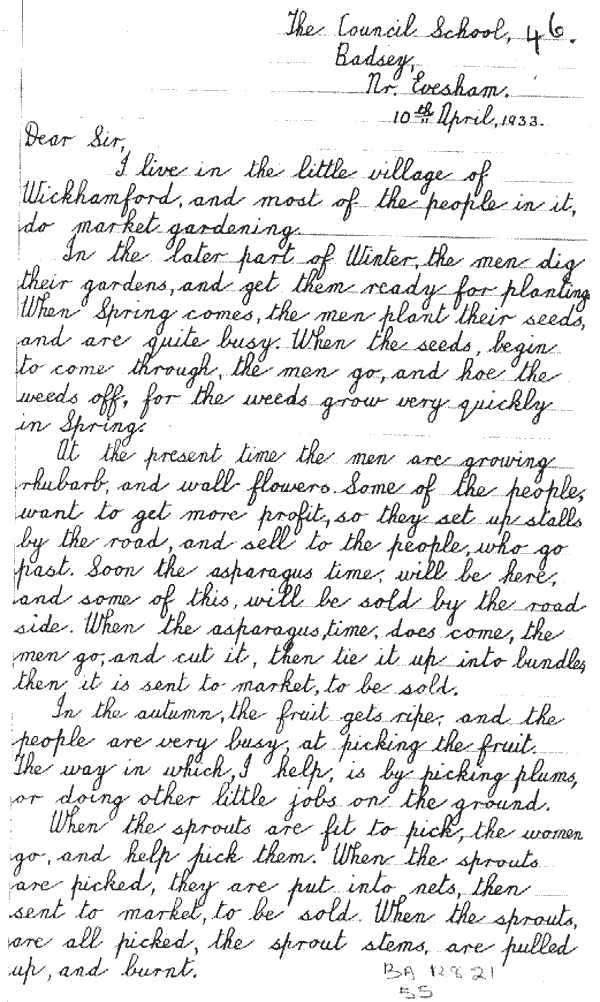 The Council School, 46.
Badsey,
Nr. Evesham.
10th April, 1933.
Dear Sir,
I live in the little village of
Wickhamford, and most of the people in it,
do market gardening.
In the later part of Winter, the men dig
their gardens, and get them ready for planting.
When Spring comes, the men plant their seeds,
and are quite busy. When the seeds, begin
to come through, the men go, and hoe the
weeds off, for the weeds grow very quickly
in Spring.
At the present time the men are growing
rhubarb, and wall flowers. Some of the people,
want to get more profit, so they set up stalls
by the road, and sell to the people, who go
past. Soon the asparagus time, will be here,
and some of this, will be sold by the road
side. When the asparagus, time, does come, the
men go, and cut it, then tie it up into bundles,
then it is sent to market, to be sold.
In the autumn, the fruit gets ripe, and the
people are very busy, at picking the fruit.
The way in which, I help, is by picking plums,
or doing other little jobs on the ground.
When the sprouts are fit to pick, the women
go, and help pick them. When the sprouts
are picked, they are put into nets, then
sent to market, to be sold. When the sprouts,
are all picked, the sprout stems, are pulled
up, and burnt.
BA 12821
55